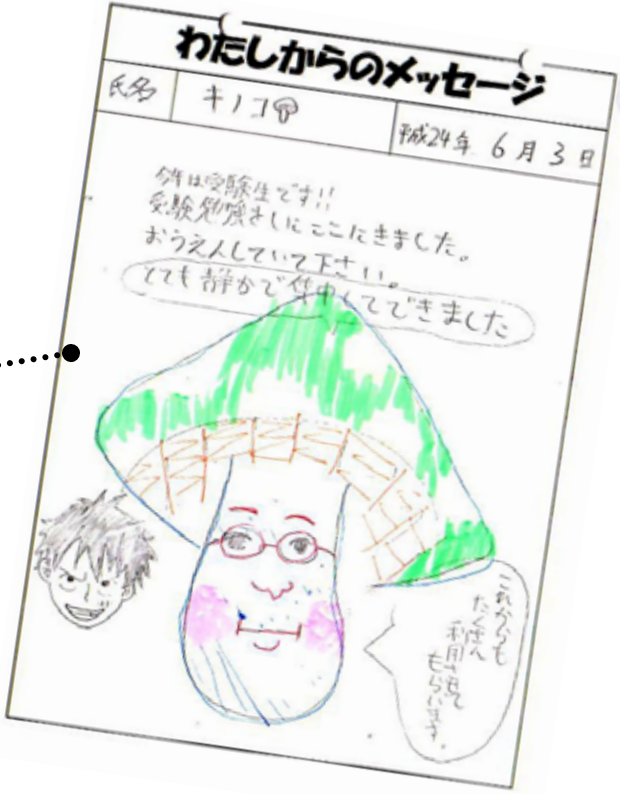 わたしからのメッセージ
氏名 キノコ 平成24年 6月3日
今年は受験生です!!
受験勉強をしにここにきました。
おうえんしていて下さい。
とても静かで集中してできました
これからも
たくさん
利用させて
もらいます。